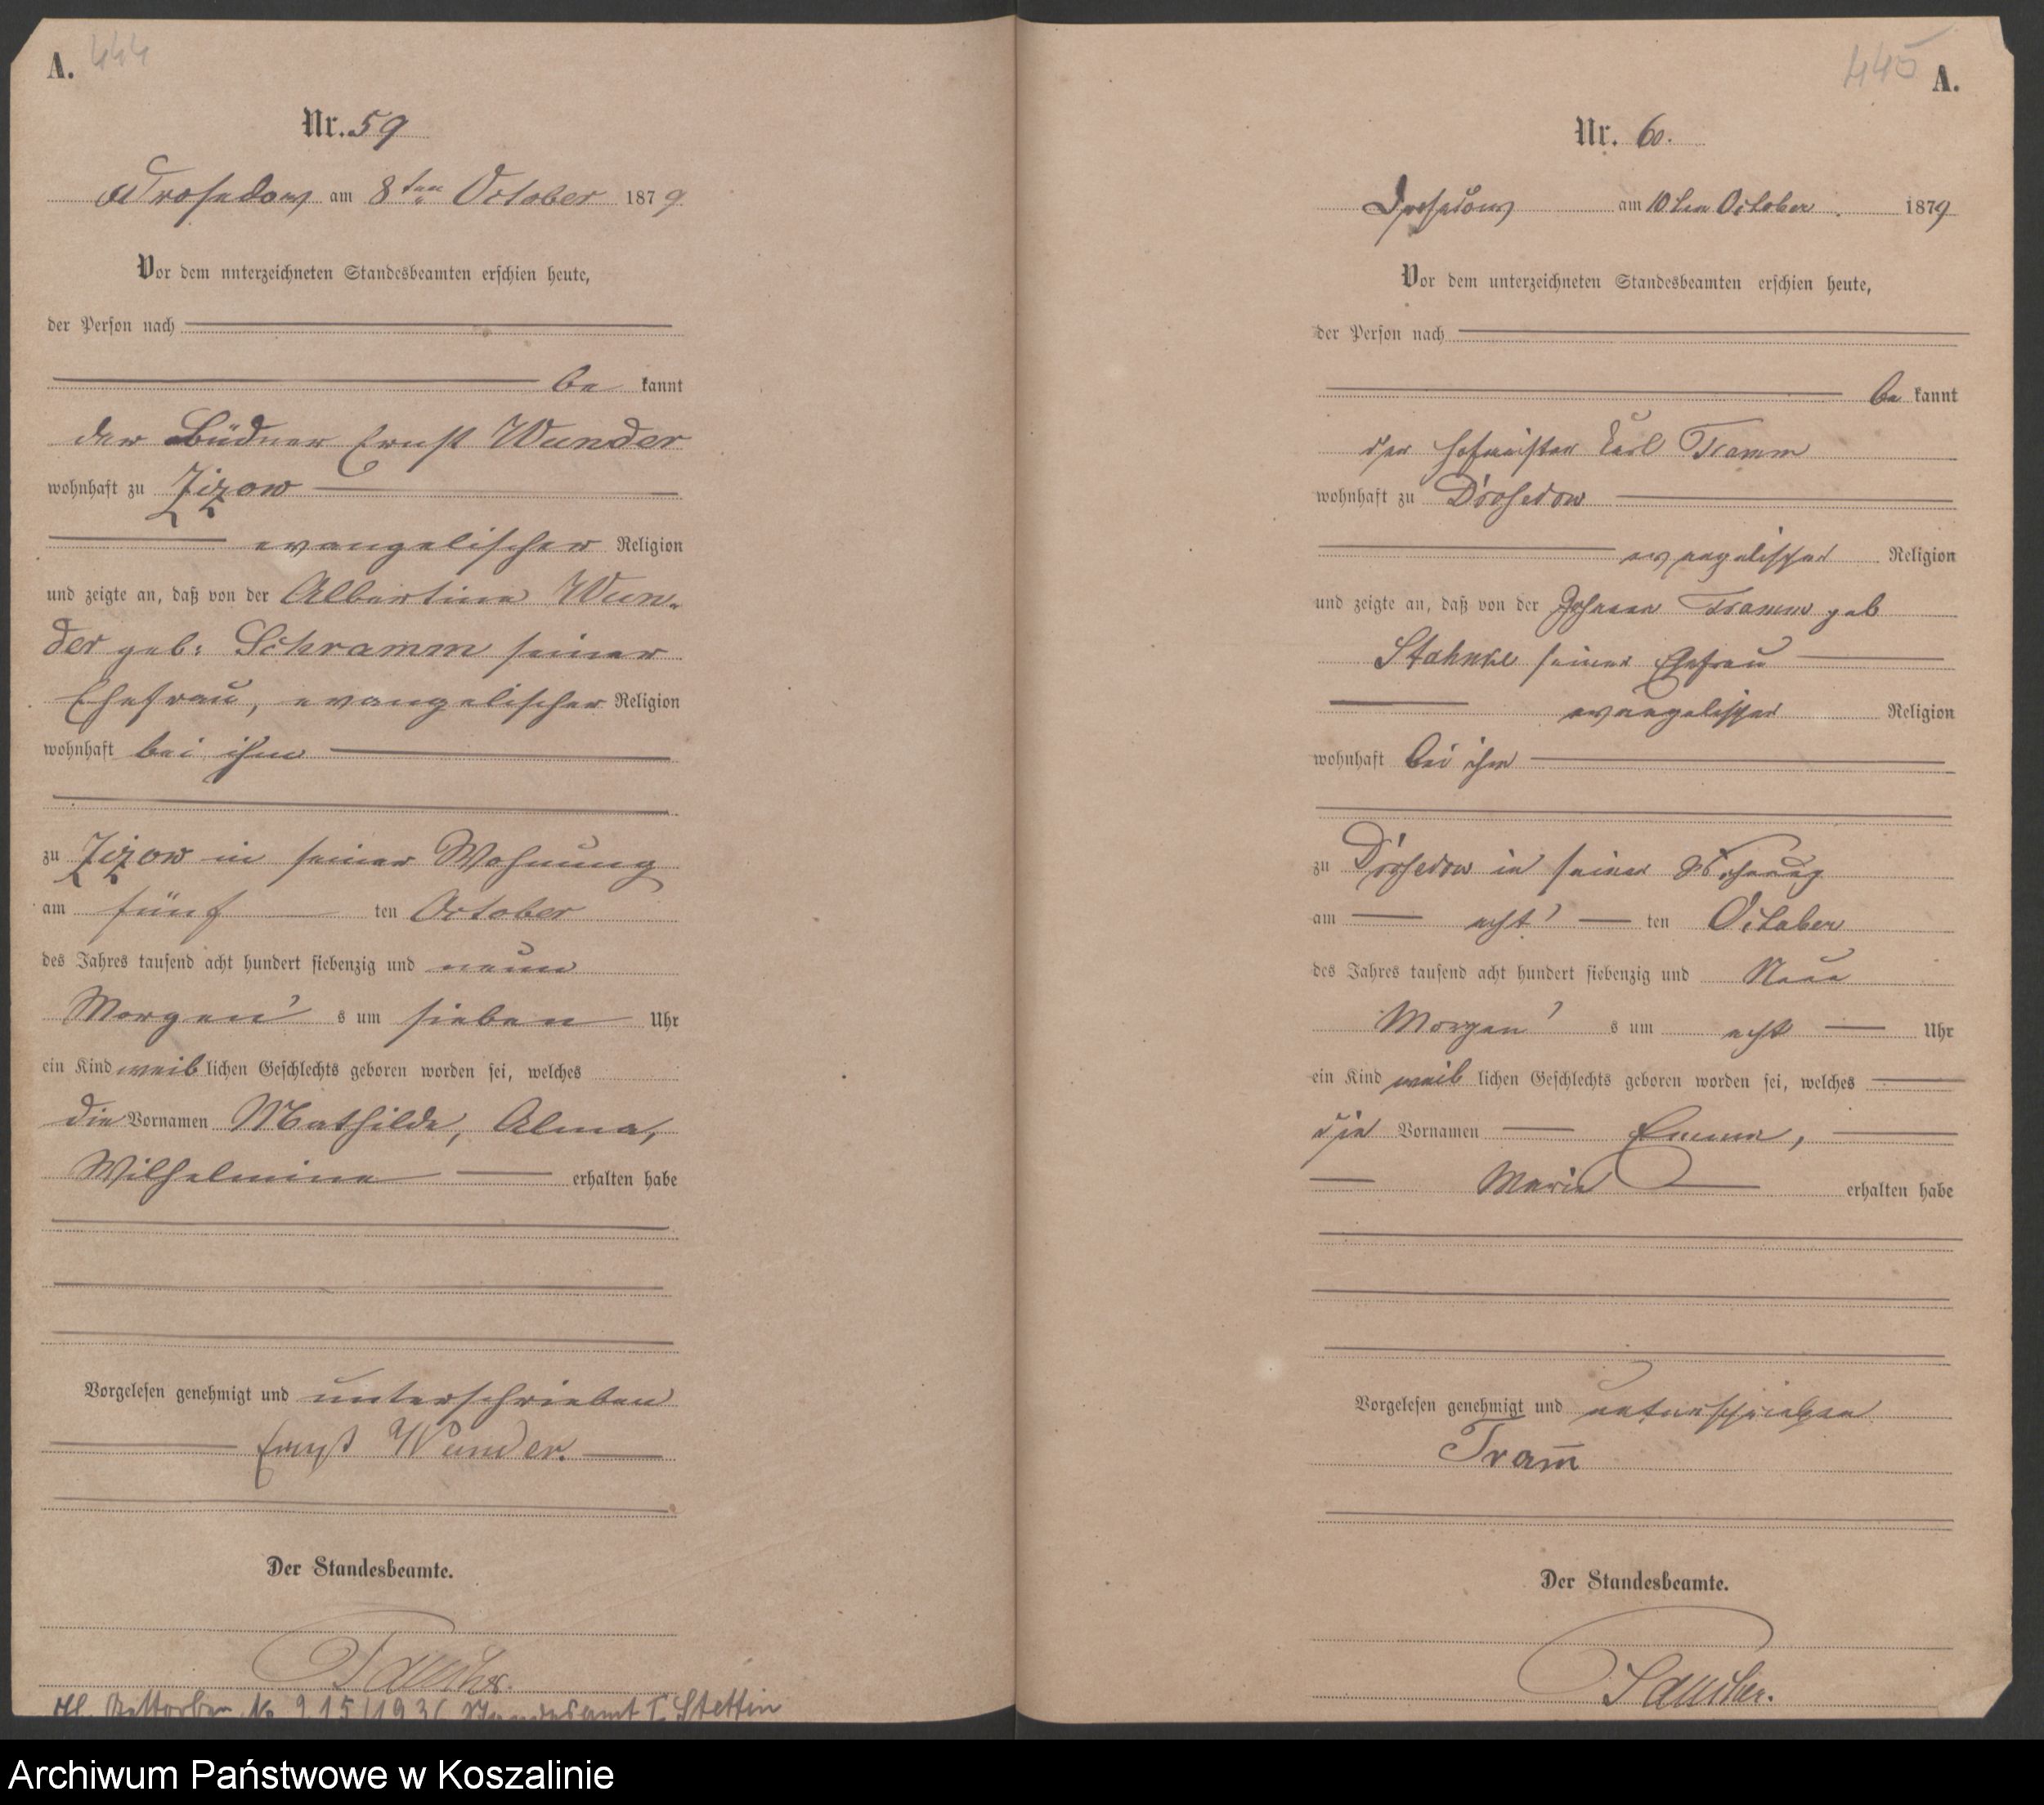 A. 444
Nr. 59
Drosedow am 8ten October 1879
Vor dem unterzeichneten Standesbeamten erschien heute,
der Person nach
be kannt
der Büdner Ernst Wunder
wohnhaft zu Zizow
evangelischer Religion
und zeigte an, daß von der Albertine Wun-
der geb: Schramm seiner
Ehefrau, evangelischer Religion
wohnhaft bei ihm
zu Zizow in seiner Wohnung
am fünf ten October
des Jahres tausend acht hundert siebenzig und neun
Morgen's um sieben Uhr
ein Kind weib lichen Geschlechts geboren worden sei, welches
die Vornamen Mathilde, Alma,
Wilhelmine erhalten habe
Vorgelesen genehmigt und unterschrieben
Ernst Wunder.
Der Standesbeamte.
Taucher.
Nr 915/193 Standesamt I Stettin
445 A.
Nr. 60.
Drosedow am 10ten October 1879
Vor dem unterzeichneten Standesbeamten erschien heute,
der Person nach
be kannt
der Hofmeister Carl Tramm
wohnhaft zu Drosedow
evangelischer Religion
und zeigte an, daß von der Johanna Tramm geb
Stahnke seiner Ehefrau
evangelischer Religion
wohnhaft bei ihm
zu Drosedow in seiner Wohnung
am acht ten October
des Jahres tausend acht hundert siebenzig und Neun
Morgen's um acht Uhr
ein Kind weib lichen Geschlechts geboren worden sei, welches
die Vornamen Emma,
Marie erhalten habe
Vorgelesen genehmigt und unterschrieben
Tram̅
Der Standesbeamte.
Taucher.
Archiwum Państwowe w Koszalinie